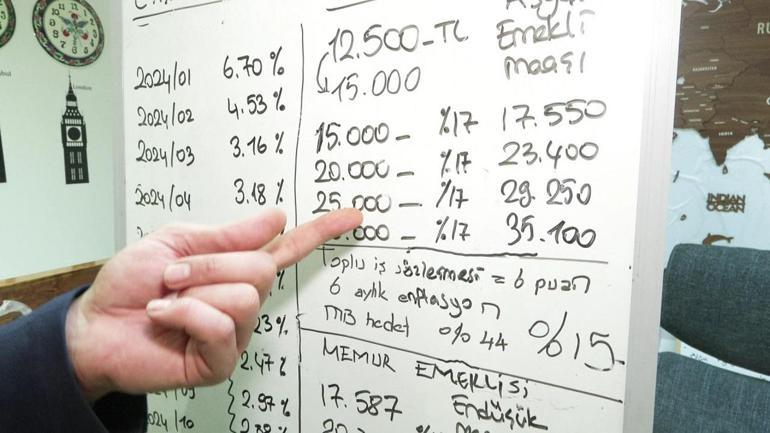 2024/01 6.70 %
2024/02 4.53 %
2024/03 3.16 %
2024/04 3.18 %
23 %
2.47 %
2.97 %
2024/10 2.88 %
12.500_TL
15.000
Emekli
maaşı
15.000 _ %17 17.550
20.000 _ %17 23.400
25.000 _ %17 29.250
.000 _ %17 35.100
Toplu iş sözleşmesi = 6 puan
6 aylık enflasyon
MB hedet % 44 %15
MEMUR EMEKLİSİ
17.587 Endüşük
London
INDIAN
OCEAN
RU